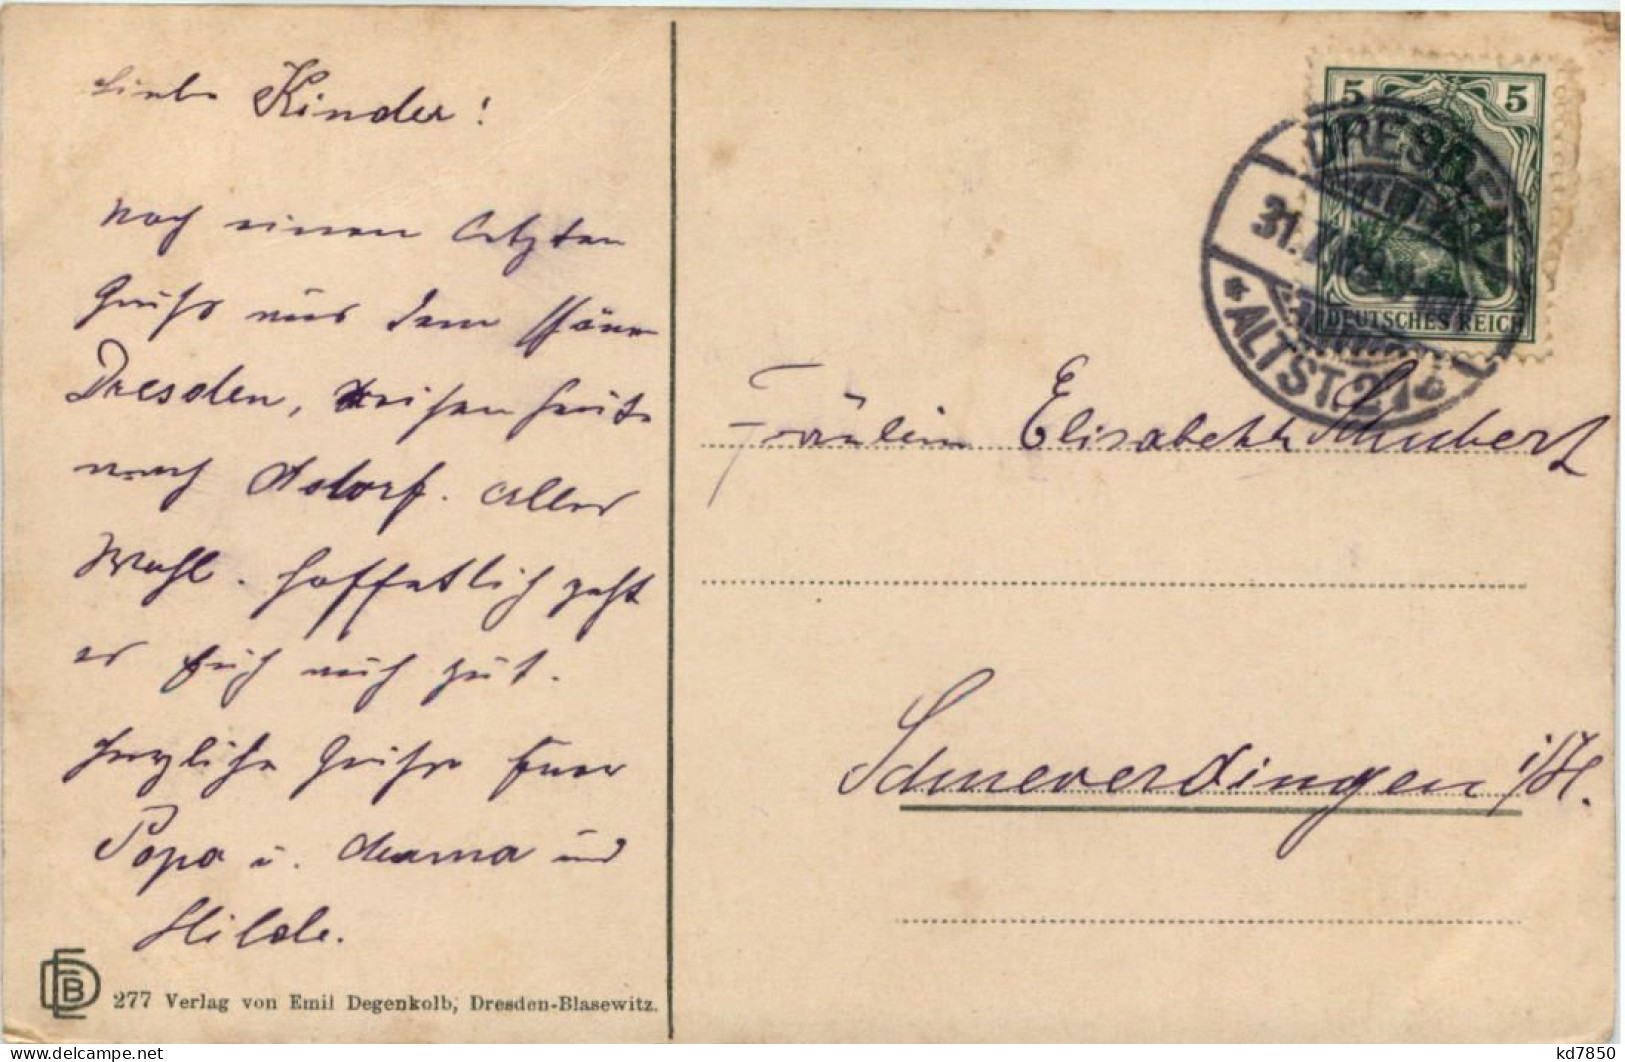 Liebe Kinder!
Noch einen letzten
Gruß aus dem schönen
Dresden, reisen heute
nach Adorf. Alles
Wohl. Hoffentlich geht
es Euch auch gut.
Herzliche Grüße Euer
Papa u. Mama und
Hilde.
277 Verlag von Emil Degenkolb, Dresden-Blasewitz.
5 5
DEUTSCHES REICH
DRESDEN
31.
* ALTST. 21 b
Fräulein Elisabeth Schubert
Schneverdingen i/H.
kd7850